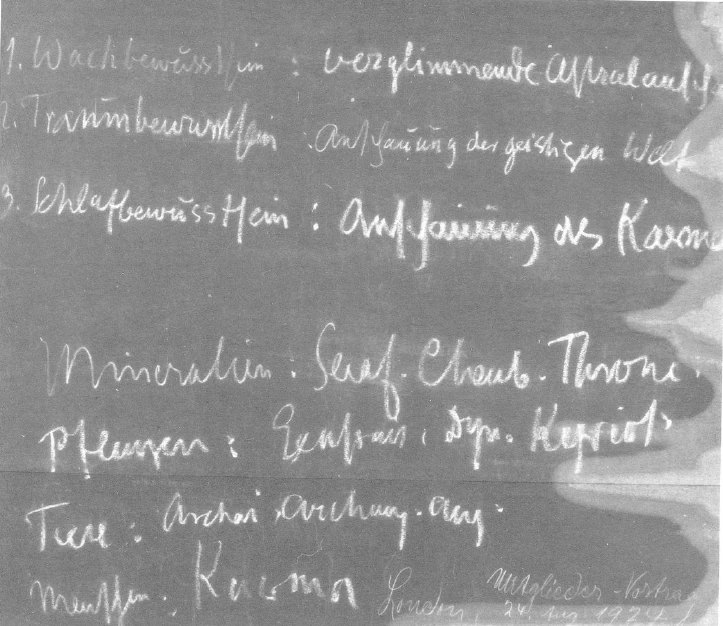 1. Wachbewusstsein : verglimmende Astralansch
2. Traumbewusstsein : Anschauung der geistigen Welt
3. Schlafbewusstsein : Anschauung des Karma
Mineralien : Seraf. Cherub. Throne.
Pflanzen : Exusiai. Dyn. Kyriot
Tiere : Archai. Archang. Ang.
Menschen : Karma
Mitglieder-Vortrag
London, 24. Aug. 1924